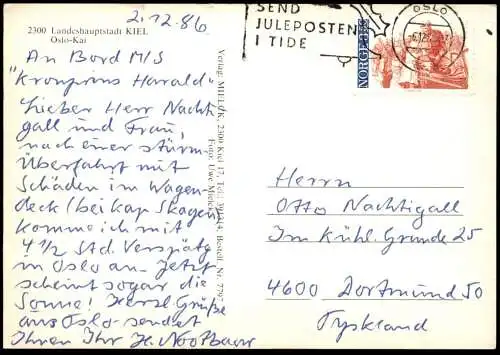 2.12.86
2300 Landeshauptstadt KIEL
Oslo-Kai
An Bord M/S
"Kronprins Harald"
Lieber Herr Nachti
gall und Frau,
nach einer stürm.
Überfahrt mit
Schäden im Wagen-
deck (bei Kap Skagen)
komme ich mit
4 1/2 Std. Verspätg
in Oslo an. Jetzt
scheint sogar die
Sonne! Herzl. Grüße
aus Oslo sendet
Ihnen Ihr H. Nootbaar
Verlag: MIELCK, 2300 Kiel 17, Tel. Bestell. Nr. 7797
Foto: Uwe
SEND
JULEPOSTEN
I TIDE
OSLO
NORGE
Herrn
Otto Nachtigall
Im Kühl. Grunde 25
4600 Dortmund 50
Tyskland